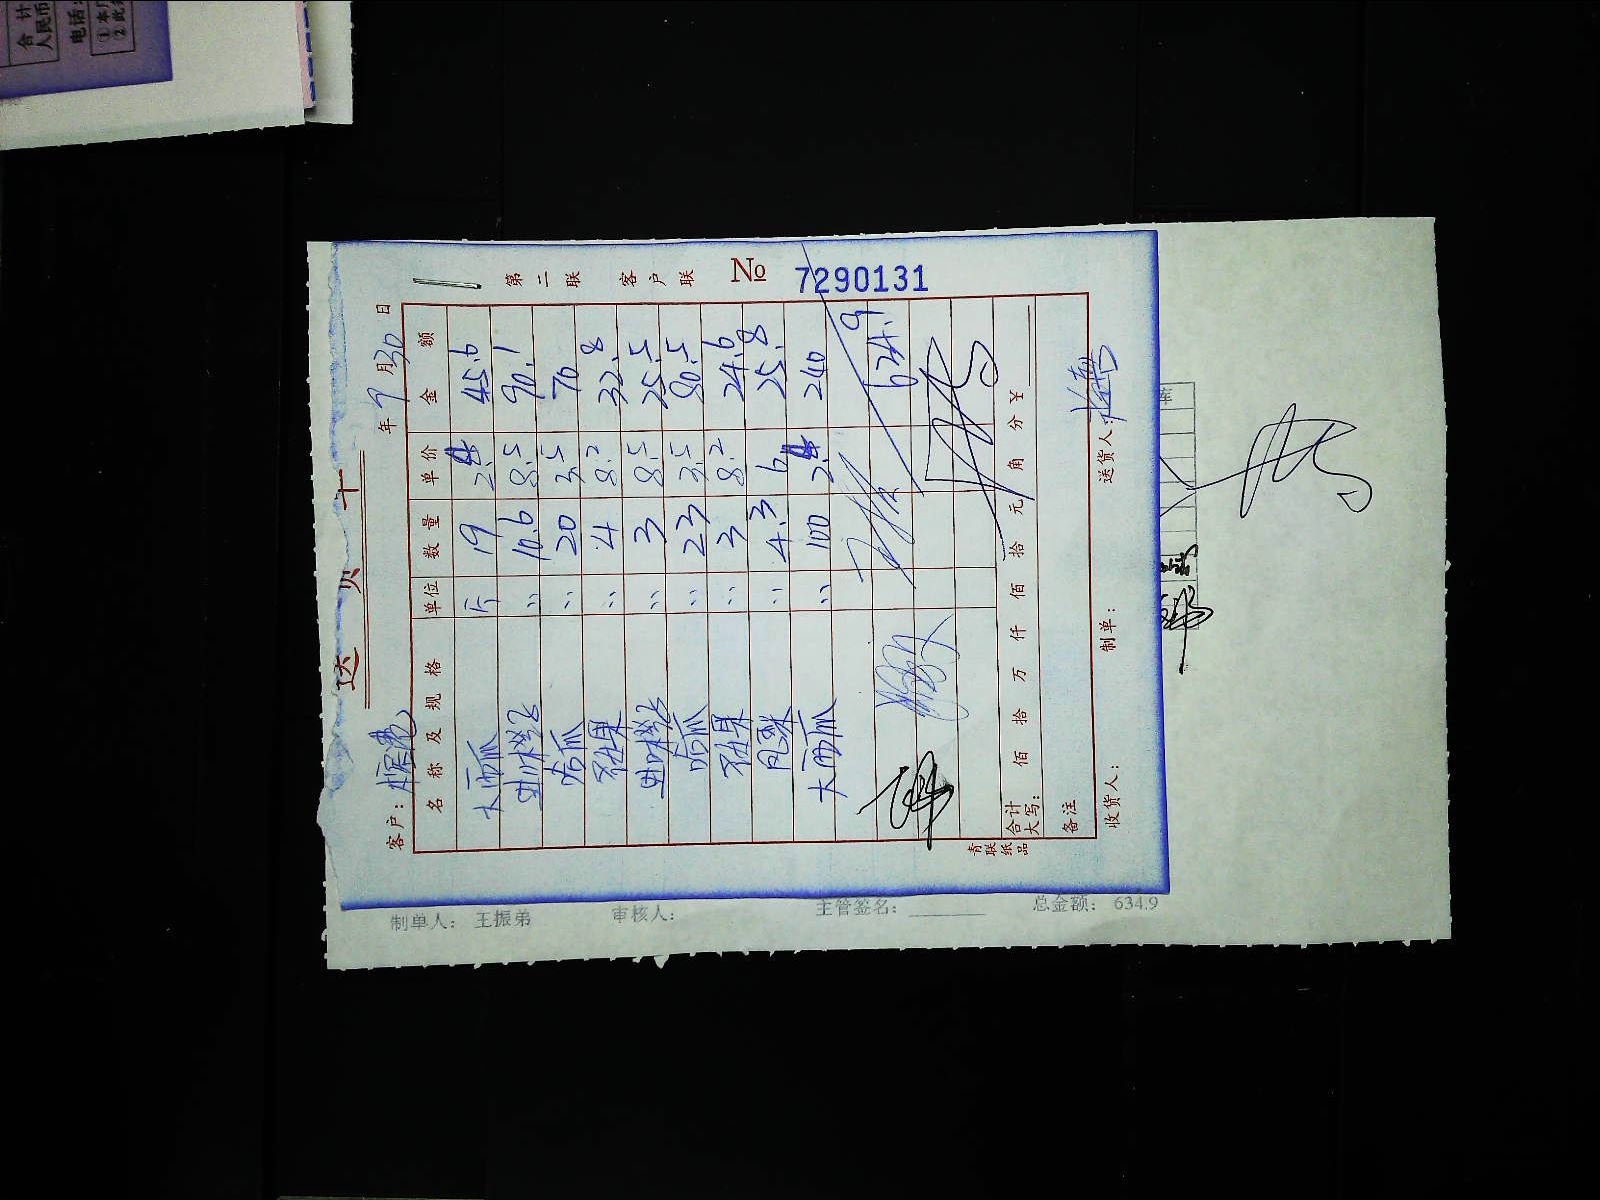 送 货 单
年 9 月 30 日
客户:
名 称 及 规 格 单位 数 量 单 价 金 额
大西瓜 斤 19 2.4 45.6
〃 10.6 8.5 90.1
哈瓜 〃 20 3.5 70
〃 4 8.2 32.8
〃 3 8.5 25.5
哈瓜 〃 23 3.5 80.5
〃 3 8.2 24.6
凤梨 〃 4.3 6 25.8
大西瓜 〃 100 2.4 240
634.9
合计大写: 佰 拾 万 仟 佰 拾 元 角 分 ¥
备注
收货人: 制单: 送货人:
青联纸品
第二联 客户联 № 7290131
制单人: 王振弟 审核人: 主管签名: 总金额: 634.9
合计
人民币
电话:
① 本
② 此